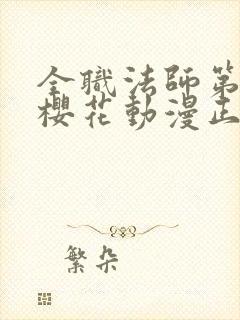 全職法師第
櫻花動漫正
繁朵